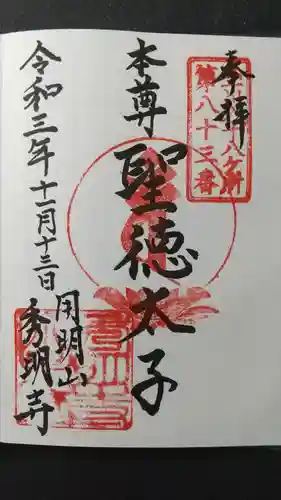 奉拝
第八十三番
本尊 聖徳太子
令和三年十一月十三日
用明山
秀明寺